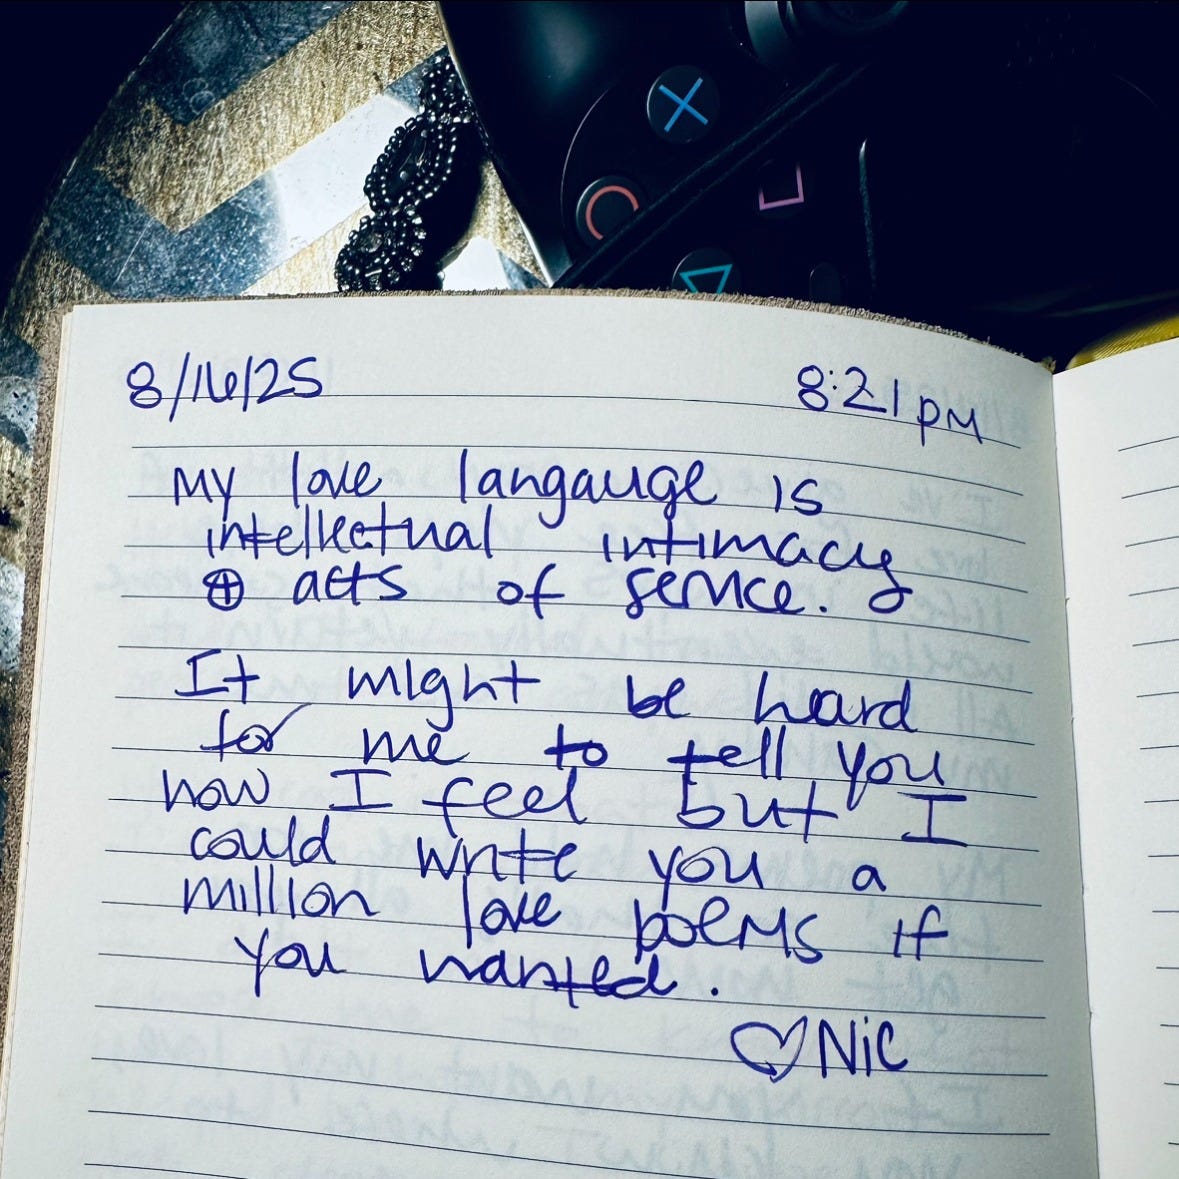 8/16/25 8:21 PM
My love langauge is
intellectual intimacy
⊕ acts of service.
It might be hard
for me to tell you
how I feel but I
could write you a
million love poems if
you wanted.
♡ Nic